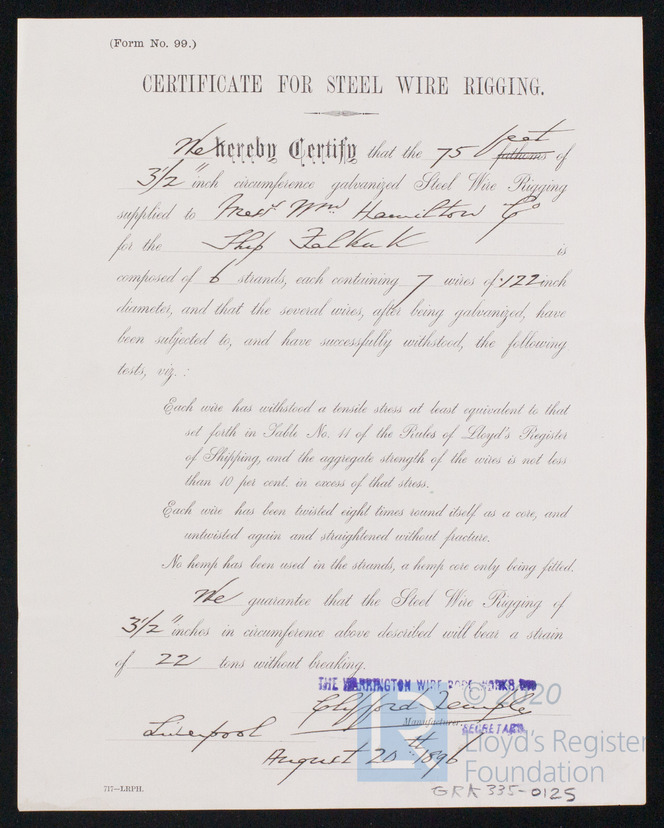 (Form No. 99.)
CERTIFICATE FOR STEEL WIRE RIGGING.
We hereby Certify that the 75 feet fathoms of
3 1/2" inch circumference galvanized Steel Wire Rigging
supplied to Messrs Wm Hamilton Co
for the Ship Falkirk is
composed of 6 strands, each containing 7 wires of .122 inch
diameter, and that the several wires, after being galvanized, have
been subjected to, and have successfully withstood, the following
tests, viz.:
Each wire has withstood a tensile stress at least equivalent to that
set forth in Table No. 11 of the Rules of Lloyd's Register
of Shipping, and the aggregate strength of the wires is not less
than 10 per cent. in excess of that stress.
Each wire has been twisted eight times round itself as a core, and
untwisted again and straightened without fracture.
No hemp has been used in the strands, a hemp core only being fitted.
We guarantee that the Steel Wire Rigging of
3 1/2" inches in circumference above described will bear a strain
of 22 tons without breaking.
THE WARRINGTON WIRE ROPE WORKS, LTD
© 2020
Clifford Temple
Manufacturer
SECRETARY.
Liverpool
Lloyd's Register
August 20th 1896
Foundation
717—LRPH.
GRK 335-0125